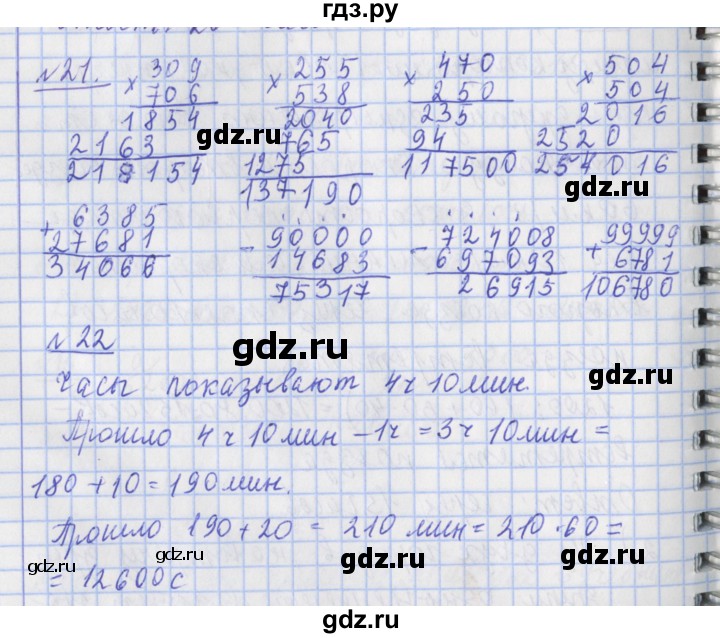 гдз.ру
№21.
× 309
706
1854
2163
218154
× 255
538
2040
765
1275
137190
× 470
250
235
94
117500
× 504
504
2016
2520
254016
gdz.ru
gdz.ru
+ 6385
27681
34066
- 90000
14683
75317
- 724008
697093
26915
+ 99999
6781
106780
№22
gdz.ru
gdz.ru
Часы показывают 4ч 10мин.
Прошло 4ч 10мин - 1ч = 3ч 10мин =
180 + 10 = 190мин.
Прошло 190 + 20 = 210 мин = 210 · 60 =
= 12600с
gdz.ru
gdz.ru
gdz.ru
gdz.ru
gdz.ru